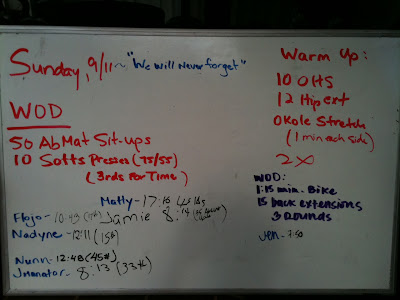 Sunday, 9/11~ "We Will Never forget"
WOD
50 AbMat Sit-ups
10 Softs Presses (75/55)
(3rds For Time)
Matty- 17:15 45 lbs
Flojo- 10:49 Jamie 8:14
Nadyne- 12:11 (15#)
Nunn- 12:48 (45#)
Jmanator- 8:13 (33#)
Warm Up:
10 OHS
12 Hip ext
Okole Stretch
(1 min each side)
2x
WOD:
1:15 min. Bike
15 back extensions
3 Rounds
Jen- 7:50